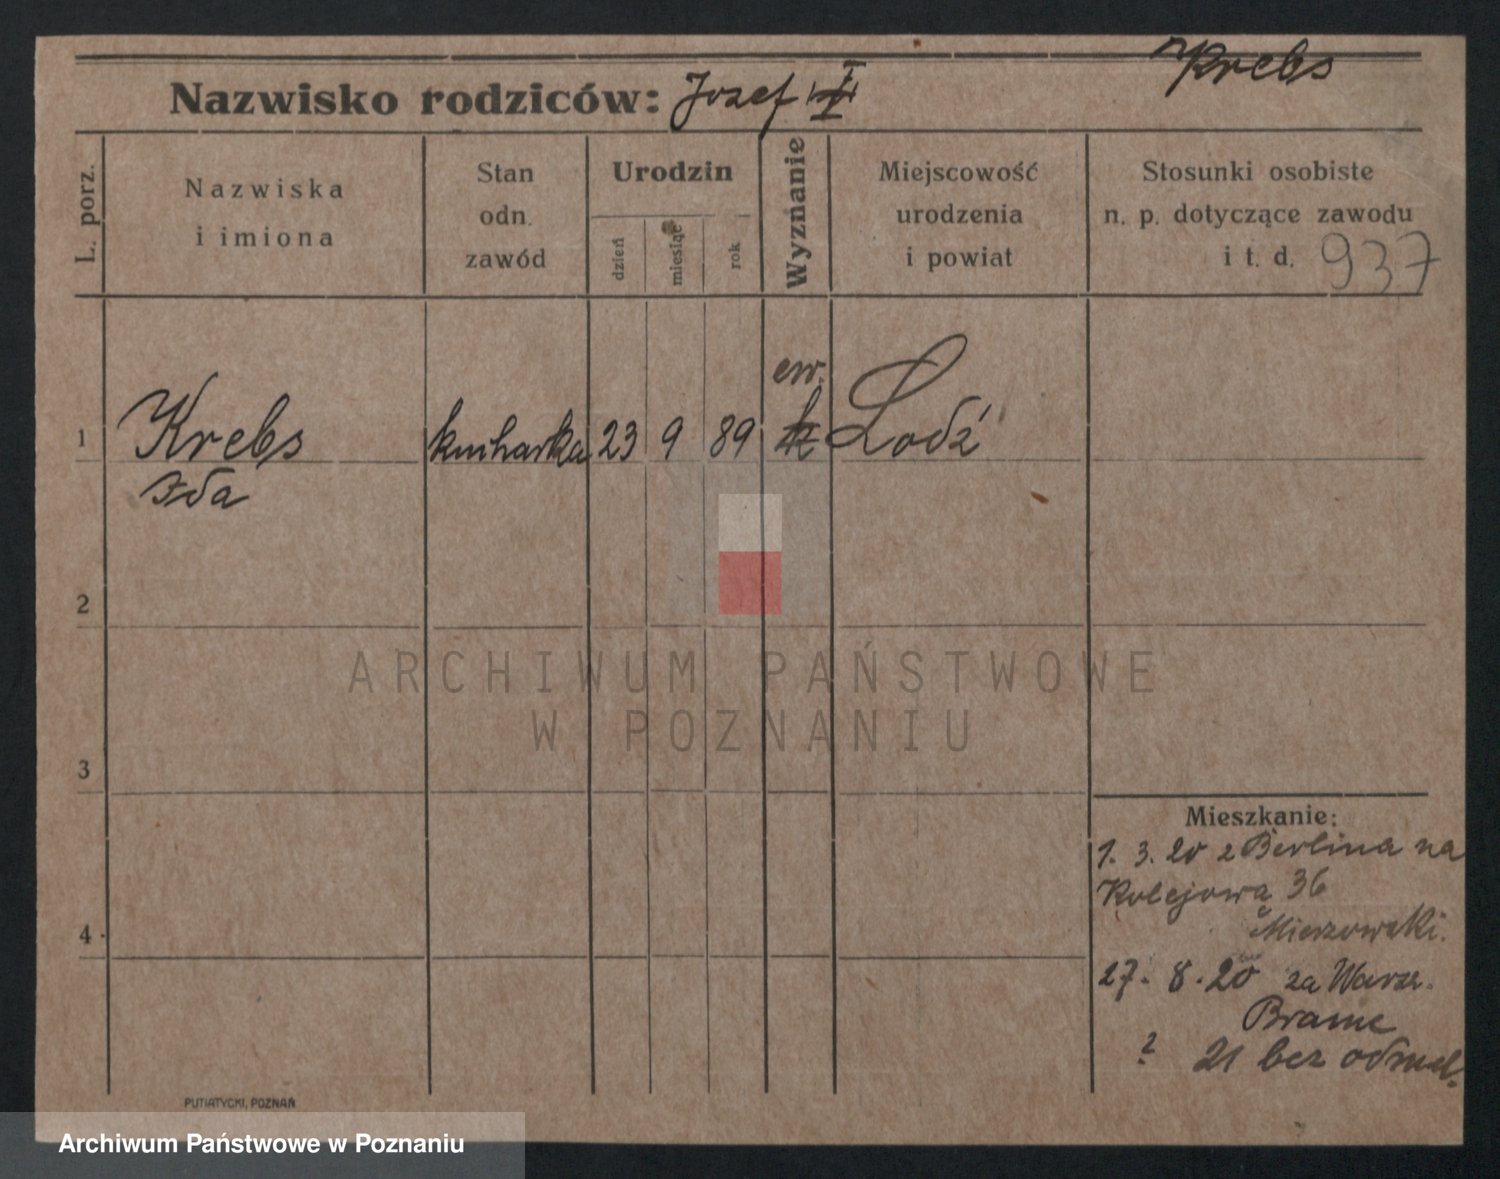 Krebs
Nazwisko rodziców: Jozef I
L. porz.
Nazwiska
i imiona
Stan
odn.
zawód
Urodzin
dzień
miesiąc
rok
Wyznanie
Miejscowość
urodzenia
i powiat
Stosunki osobiste
n. p. dotyczące zawodu
i t. d. 937
ew.
1 Krebs kucharka 23 9 89 Lodź
Ida
2
3
4
ARCHIWUM PAŃSTWOWE
W POZNANIU
Mieszkanie:
1. 3. 20 z Berlina na
Kolejową 36
27. 8. 20 za Warsz.
Bramę
? 21 bez odmel.
PUTIATYCKI, POZNAŃ
Archiwum Państwowe w Poznaniu